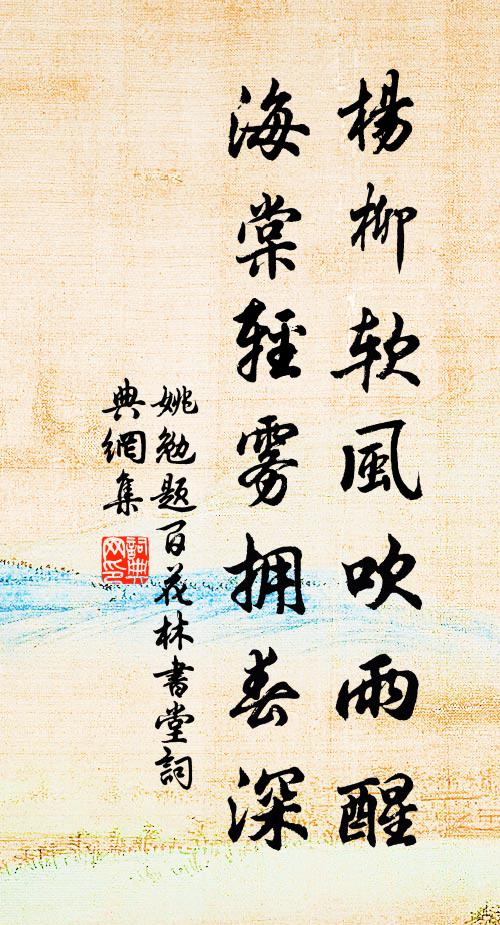 楊柳软風吹雨醒
海棠輕雾拥春深
姚勉题百花林書堂詞
典網集
詞典
网印